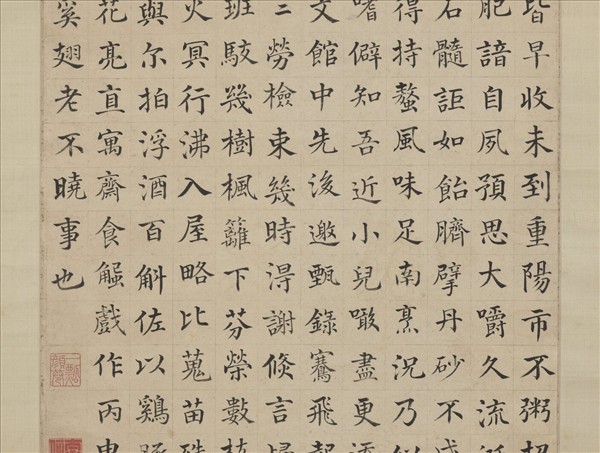 皆早收未到重陽市不粥
肥諳自夙預思大嚼久流
石髓詎如飴臍擘丹砂不
得持螯風味足南烹況乃
嗜僻知吾近小兒噉盡更
文館中先後邀甄錄騫飛
二勞檢束幾時淂謝倐言
班駮幾樹楓籬下芬榮數
火冥行沸入屋略比蒐苗
與尔拍浮酒百斛佐以鷄
花亮直寓齋食蠏戲作丙
奚翅老不曉事也